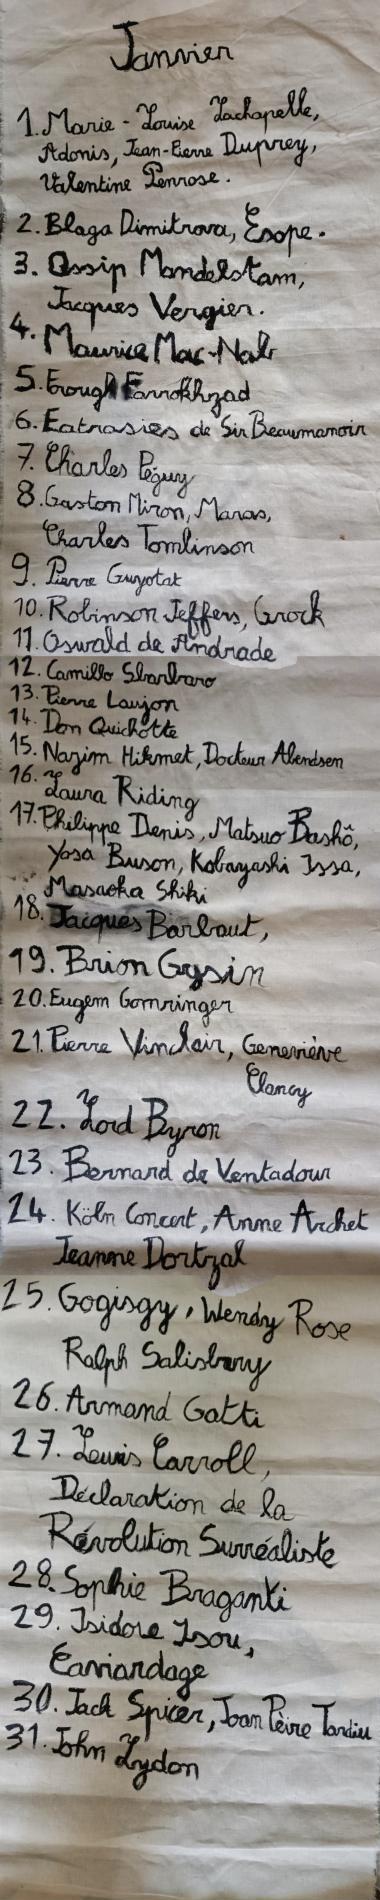 Janvier
1. Marie-Louise Lachapelle,
Adonis, Jean-Pierre Duprey,
Valentine Penrose.
2. Blaga Dimitrova, Esope.
3. Ossip Mandelstam,
Jacques Vergier.
4. Maurice Mac-Nab
5. Forough Farrokhzad
6. Fatrasies de Sir Beaumanoir
7. Charles Péguy
8. Gaston Miron, Maras,
Charles Tomlinson
9. Pierre Guyotat
10. Robinson Jeffers, Grock
11. Oswald de Andrade
12. Camillo Sbarbaro
13. Pierre Laujon
14. Don Quichotte
15. Nazim Hikmet, Docteur Abendsen
16. Laura Riding
17. Philippe Denis, Matsuo Bashô,
Yosa Buson, Kobayashi Issa,
Masaoka Shiki
18. Jacques Barbaut,
19. Brion Gysin
20. Eugem Gomringer
21. Pierre Vinclair, Geneviève
Clancy
22. Lord Byron
23. Bernard de Ventadour
24. Köln Concert, Anne Archet
Jeanne Dortzal
25. Gogisgy, Wendy Rose
Ralph Salisbury
26. Armand Gatti
27. Lewis Carroll,
Déclaration de la
Révolution Surréaliste
28. Sophie Braganti
29. Isidore Isou,
Caviardage
30. Jack Spicer, Joan Pèire Tardiu
31. John Lydon